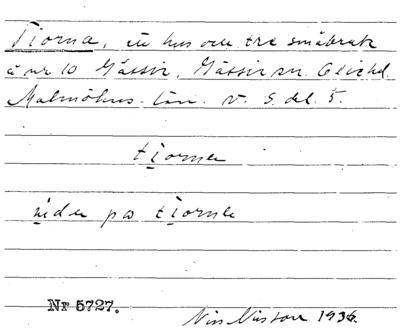 Tiorna, ett hus och tre småbruk
å nr 10 Gässie, Gässie sn.
Malmöhus län. v. 5. del. 5.
tiorna
neda på tiorna
Nr 5727.
Nils Nilsson 1936.